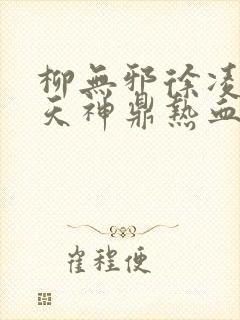 柳無邪徐凌
天神鼎熱血
崔程便